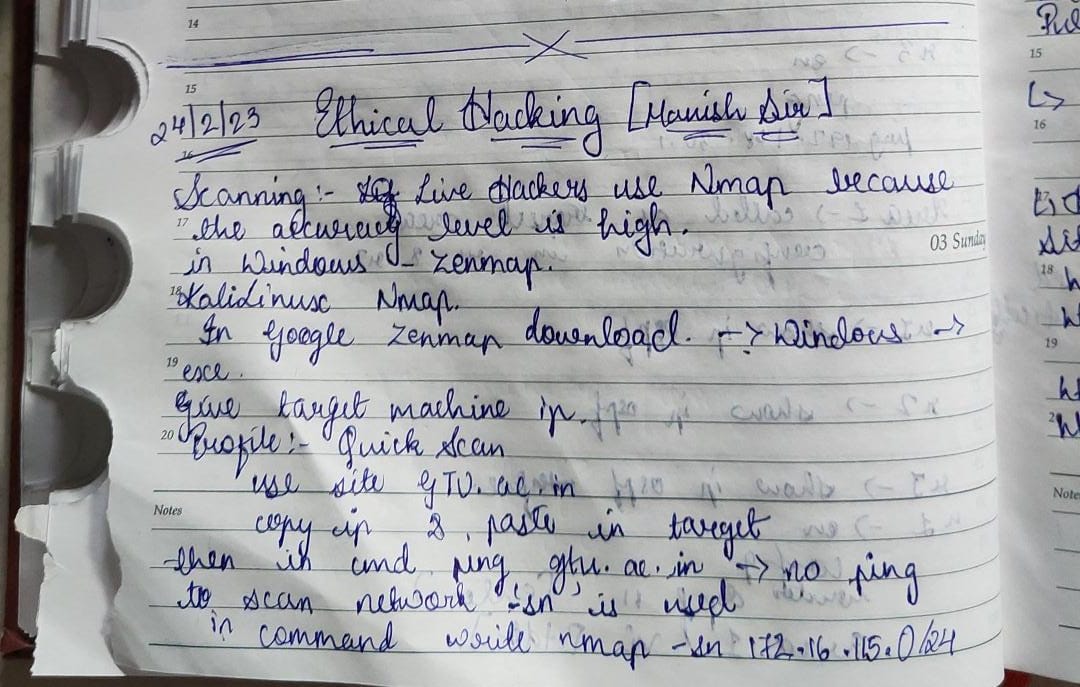 14
15
24/2/23 Ethical Hacking [Manish Sir]
16
Scanning :- Live Hackers use Nmap because
17 the accuracy level is high.
03 Sunday
in Windows - Zenmap.
18 KaliLinusc Nmap.
In Google Zenmap download. -> Windows ->
19 esce.
Give target machine ip.
20 Profile :- Quick Scan
use site GTU.ac.in
Notes
copy ip & paste in target
then in cmd ping gtu.ac.in -> no ping
to scan network '-sn' is used
in command write nmap -sn 172.16.115.0/24
15
16
18
19
Note